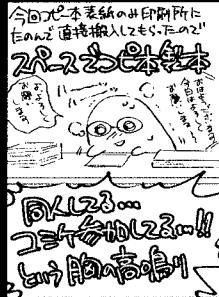 今回コピー本表紙のみ印刷所に
たのんで直接搬入してもらったので
スペースでコピ本製本
おはようございます
今日はよろしく
お願いします
よろしく
お願い
同人してる…
コミケ参加してる…!!
という胸の高鳴り